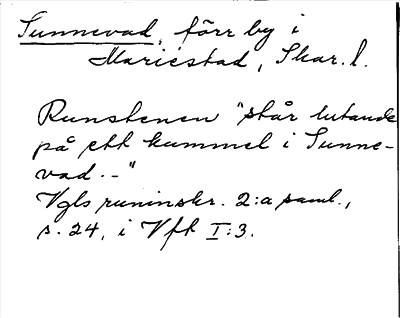 Sunnevad, förr by i
Mariestad, Skar. l.
Runstenen "står lutande
på ett kummel i Sunne-
vad.-"
Vgls runinskr. 2:a saml.,
s. 24, i Vft I:3.